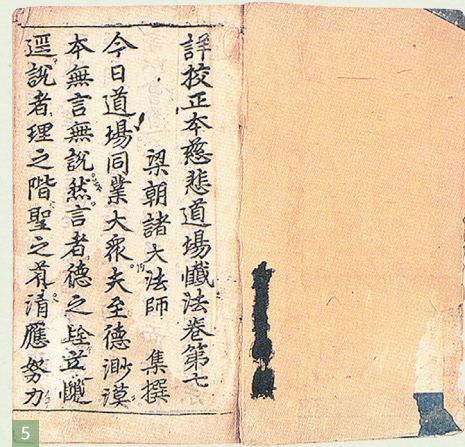 詳校正本慈悲道場懺法卷第七
梁朝諸大法師 集撰
今日道場同業大衆夫至德渺漠
本無言無說然言者德之
逕說者理之階聖之 清應努力
5